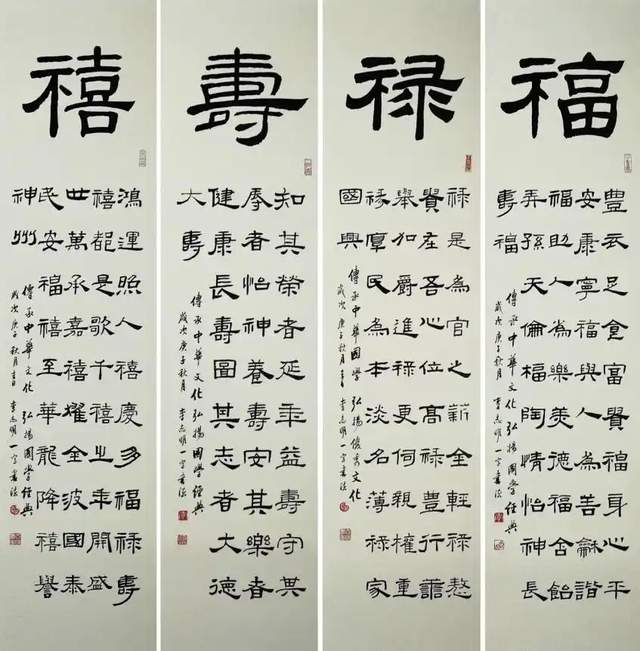 福
豐衣足食富貴福身心平
安康寧福與人為善龢諧
福助人為樂美德福含飴
弄孫天倫福陶情怡神長
壽福
傳承中華文化弘揚國學經典
歲次庚子秋月李志明一字書法
禄
禄是為官之薪金輕禄
貴在吾心位高禄豐行
舉加爵進禄更伺親權重
禄厚民為本淡名薄禄家
國興
傳承中華國學弘揚優秀文化
歲次庚子秋月書李志明一字書法
壽
知其榮者延年益壽守其
辱者怡神養壽安其樂者
健康長壽圖其志者大德
大壽
傳承中華文化弘揚國學經典
歲次庚子秋月李志明一字書法
禧
鴻運照人禧慶多福禄壽
禧都是歌千禧之年開盛
世萬承嘉禧耀金波國泰
民安福禧至華龍降禧譽
神州
傳承中華文化弘揚國學經典
歲次庚子秋月書李志明一字書法